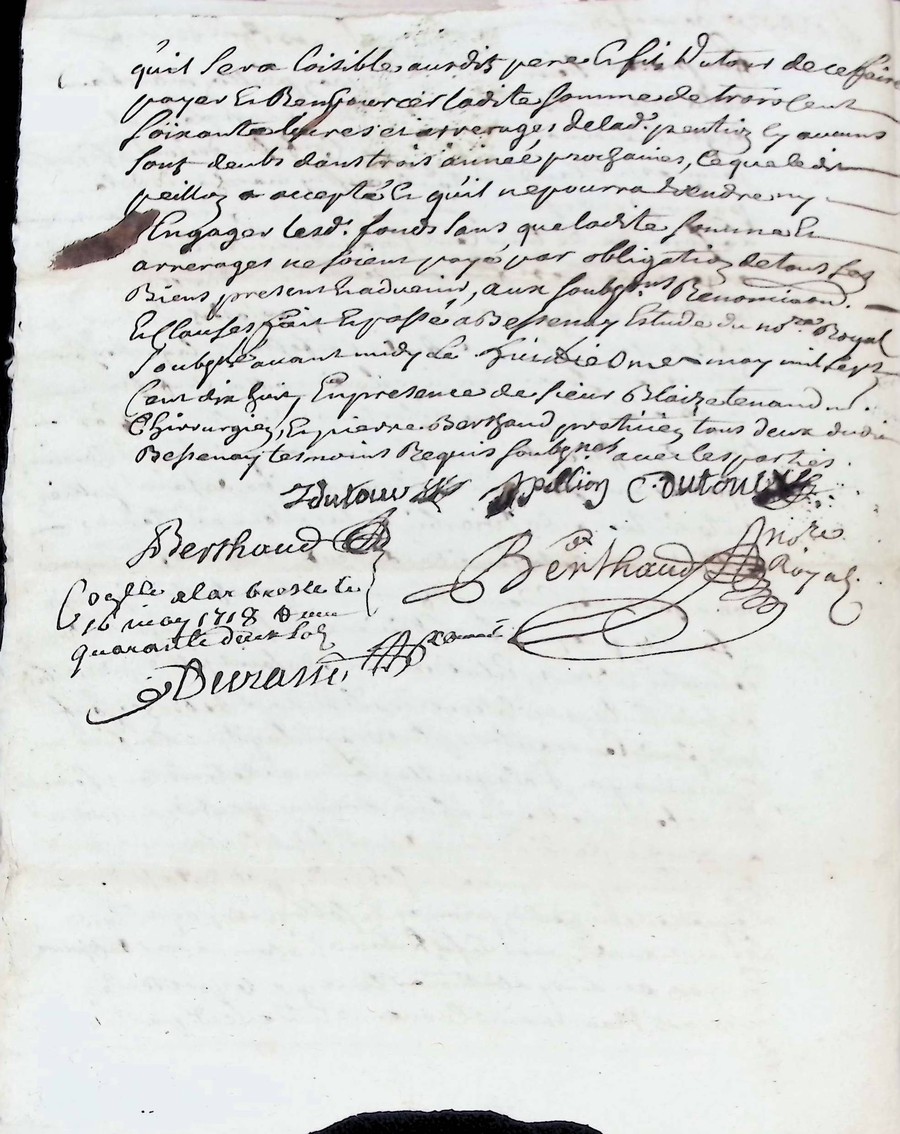 quil sera loisible ausdits pere & fils Dutour de ce faire
payer & Rembourcer ladite somme de trois cent
soixante livres et arrerages de lad. pention sy aucuns
sont deubs dans trois année prochaines, ce que ledit
peillon a accepté & quil ne pourra vendre ny
Engager lesd. fonds sans que ladite somme &
arrerages ne soient payé par obligation de tous ses
Biens present & advenir, aux soubmons Renonciaon.
& Clauses fait & passé a Bessenay Estude du nore Royal
soubgné avant midy le may mil sept
Cent dix huit, En presence de sieur Blaize tenaud
Chirurgien, & pierre Berthaud pratticien tous deux dudit
Bessenay tesmoins Requis soubgnes avec les parties.
Jdutour peillion C dutour
Berthaud Berthaud nore Royal
Colle a larbresle le
16 may 1718
quarante deux sols
Durassé